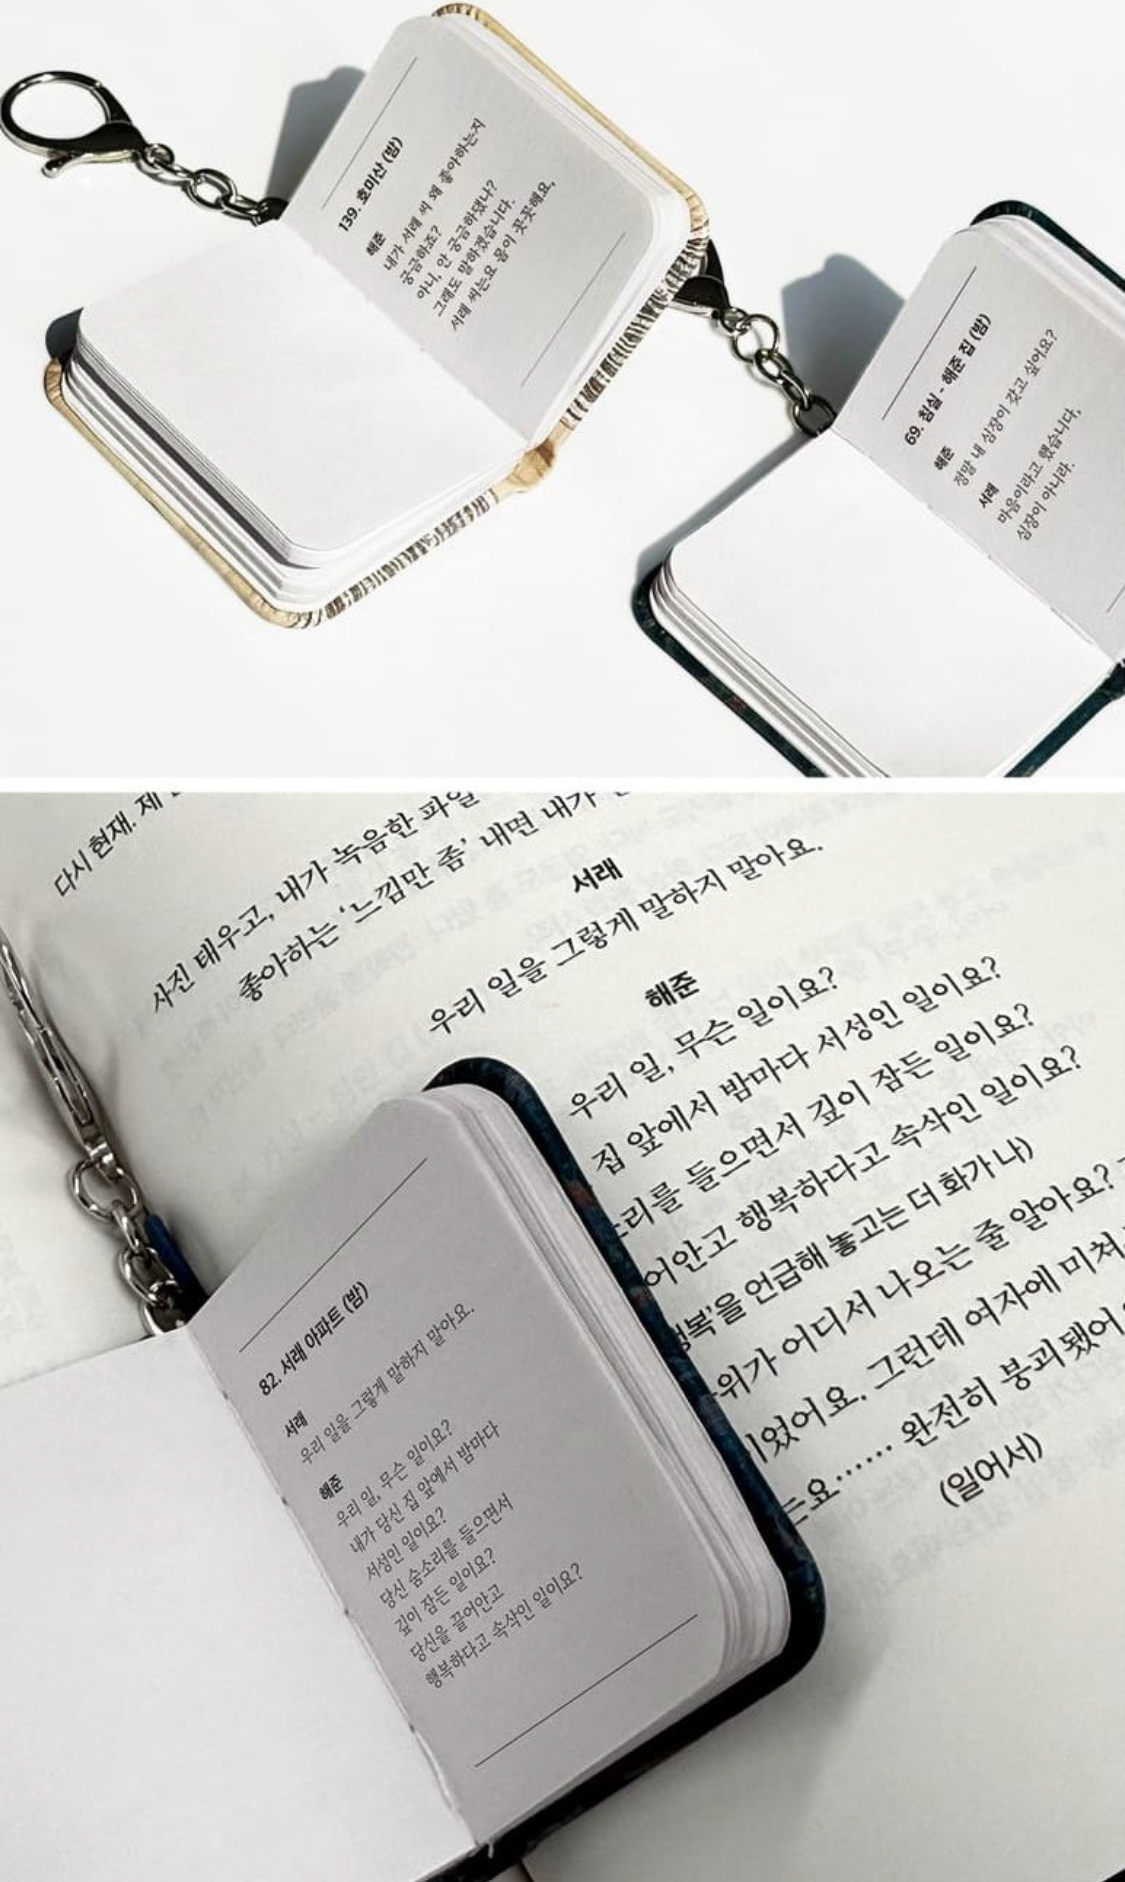 139. 호미산 (밤)
해준
내가 서래 씨 왜 좋아하는지
궁금하죠?
아니, 안 궁금하댔나?
그래도 말하겠습니다.
서래 씨는요 몸이 꼿꼿해요.
69. 침실 - 해준 집 (밤)
해준
정말 내 심장이 갖고 싶어요?
서래
마음이라고 했습니다,
심장이 아니라.
다시 현재. 제
사진 태우고, 내가 녹음한 파일
좋아하는 ‘느낌만 좀’ 내면 내가
서래
우리 일을 그렇게 말하지 말아요.
해준
우리 일, 무슨 일이요?
집 앞에서 밤마다 서성인 일이요?
리를 들으면서 깊이 잠든 일이요?
어안고 행복하다고 속삭인 일이요?
복’을 언급해 놓고는 더 화가 나)
위가 어디서 나오는 줄 알아요?
었어요. 그런데 여자에 미쳐
요…… 완전히 붕괴됐어
(일어서)
82. 서래 아파트 (밤)
서래
우리 일을 그렇게 말하지 말아요.
해준
우리 일, 무슨 일이요?
내가 당신 집 앞에서 밤마다
서성인 일이요?
당신 숨소리를 들으면서
깊이 잠든 일이요?
당신을 끌어안고
행복하다고 속삭인 일이요?